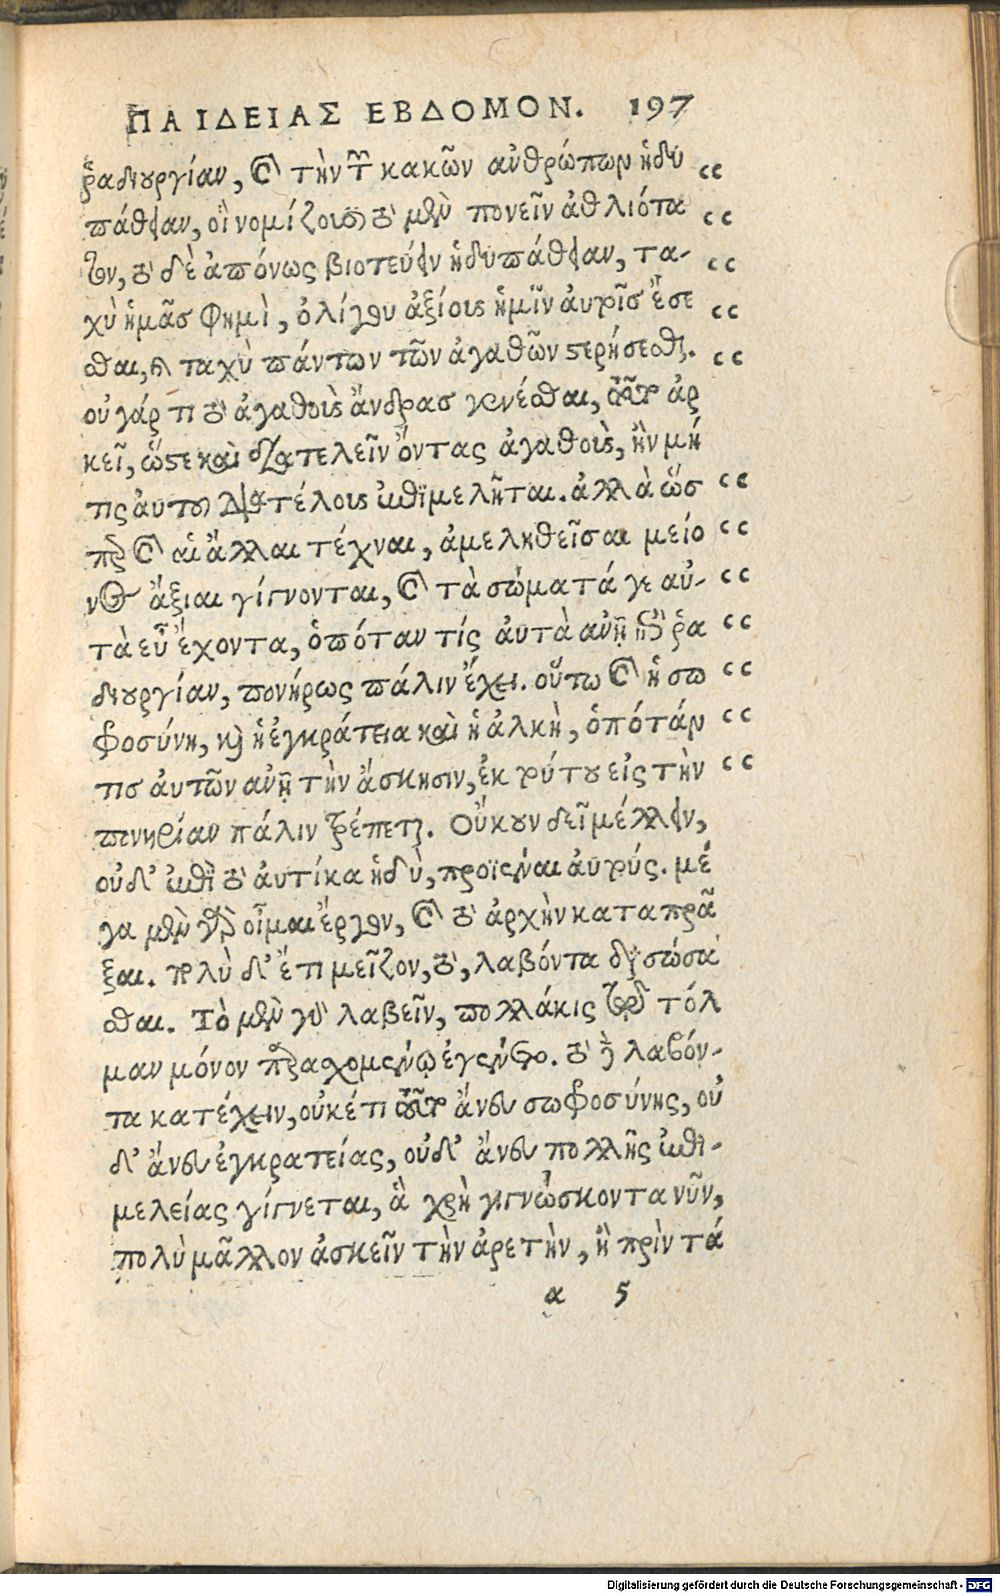 ΠΑΙΔΕΙΑΣ ΕΒΔΟΜΟΝ. 197
ῥαδιουργίαν, καὶ τὴν τῶν κακῶν ἀνθρώπων ἡδυ
πάθειαν, οἳ νομίζουσι τὸ μὲν πονεῖν ἀθλιότα
τον, τὸ δὲ ἀπόνως βιοτεύειν ἡδυπάθειαν, τα-
χὺ ἡμᾶς φημὶ, ὀλίγου ἀξίους ἡμῖν αὐτοῖς ἔσε
σθαι, καὶ ταχὺ πάντων τῶν ἀγαθῶν στερήσεσθαι.
οὐ γάρ τι τὸ ἀγαθοὺς ἄνδρας γενέσθαι, τοῦτο ἀρ
κεῖ, ὥστε καὶ διατελεῖν ὄντας ἀγαθοὺς, ἢν μή
τις αὐτοῦ διὰ τέλους ἐπιμελῆται. ἀλλὰ ὥσ
περ καὶ αἱ ἄλλαι τέχναι, ἀμεληθεῖσαι μείο
νος ἄξιαι γίγνονται, καὶ τὰ σώματά γε αὐ-
τὰ εὖ ἔχοντα, ὁπόταν τίς αὐτὰ ἀνῇ ἐπὶ ῥᾳ
διουργίαν, πονήρως πάλιν ἔχει. οὕτω καὶ ἡ σω
φροσύνη, καὶ ἡ ἐγκράτεια καὶ ἡ ἀλκὴ, ὁπόταν
τις αὐτῶν ἀνῇ τὴν ἄσκησιν, ἐκ τούτου εἰς τὴν
πονηρίαν πάλιν τρέπεται. Οὔκουν δεῖ μέλλειν,
οὐδ' ἐπὶ τὸ αὐτίκα ἡδὺ, προϊέναι αὐτούς. μέ
γα μὲν γὰρ οἶμαι ἔργον, καὶ τὸ ἀρχὴν καταπρᾶ
ξαι. πολὺ δ' ἔτι μεῖζον, τὸ, λαβόντα διασώσα
σθαι. Τὸ μὲν γὰρ λαβεῖν, πολλάκις τῷ τόλ
μαν μόνον παρασχομένῳ ἐγένετο. τὸ δὲ λαβόν-
τα κατέχειν, οὐκέτι τοῦτο ἄνευ σωφροσύνης, οὐ
δ' ἄνευ ἐγκρατείας, οὐδ' ἄνευ πολλῆς ἐπι-
μελείας γίγνεται, ἃ χρὴ γιγνώσκοντα νῦν,
πολὺ μᾶλλον ἀσκεῖν τὴν ἀρετὴν, ἢ πρὶν τά
α 5
Digitalisierung gefördert durch die Deutsche Forschungsgemeinschaft - DFG